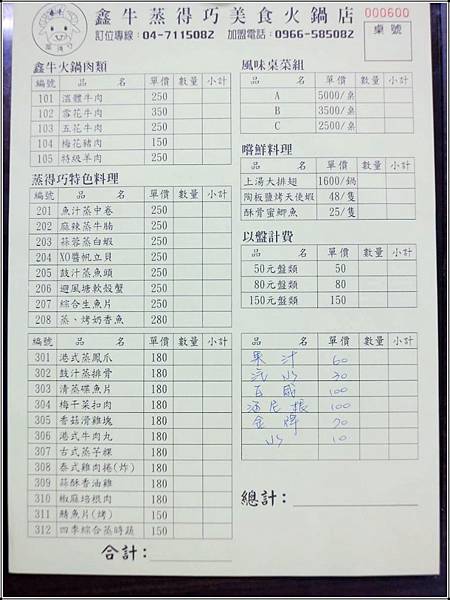 鑫牛蒸得巧美食火鍋店
訂位專線：04-7115082 加盟電話：0966-585082
000600
桌號
鑫牛火鍋肉類
編號 品名 單價 數量 小計
101 溫體牛肉 250
102 雪花牛肉 350
103 五花牛肉 250
104 梅花豬肉 150
105 特級羊肉 250
蒸得巧特色料理
編號 品名 單價 數量 小計
201 魚汁蒸中卷 250
202 麻辣蒸牛腩 250
203 蒜蓉蒸白蝦 250
204 XO醬帆立貝 250
205 鼓汁蒸魚頭 250
206 避風塘軟殼蟹 250
207 綜合生魚片 250
208 蒸、烤奶香魚 280
編號 品名 單價 數量 小計
301 港式蒸鳳爪 180
302 鼓汁蒸排骨 180
303 清蒸碟魚片 180
304 梅干菜扣肉 180
305 香菇滑雞塊 180
306 港式牛肉丸 180
307 古式蒸子粿 180
308 泰式雞肉捲(炸) 180
309 蒜酥香油雞 180
310 椒麻培根肉 180
311 鯖魚片(烤) 150
312 四季綜合蒸時蔬 150
合計：
風味桌菜組
品名 單價 數量 小計
A 5000/桌
B 3500/桌
C 2500/桌
嚐鮮料理
品名 單價 數量 小計
上湯大排翅 1600/鍋
陶板鹽烤天使蝦 48/隻
酥骨蜜鯽魚 25/隻
以盤計費
品名 單價 數量 小計
50元盤類 50
80元盤類 80
150元盤類 150
品名 單價 數量 小計
果汁 60
汽水 30
百威 100
海尼根 100
金牌 70
水 10
總計：